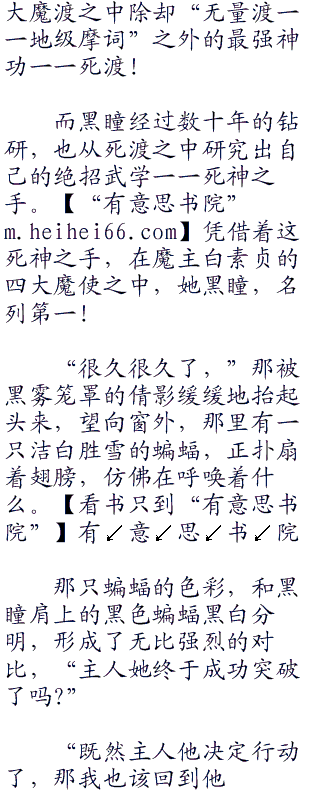 大魔渡之中除却“无量渡一
一地级摩词”之外的最强神
功一一死渡！
而黑瞳经过数十年的钻
研，也从死渡之中研究出自
己的绝招武学一一死神之
手。【“有意思书院”
m.heihei66.com】凭借着这
死神之手，在魔主白素贞的
四大魔使之中，她黑瞳，名
列第一！
“很久很久了，”那被
黑雾笼罩的倩影缓缓地抬起
头来，望向窗外，那里有一
只洁白胜雪的蝙蝠，正扑扇
着翅膀，仿佛在呼唤着什
么。【看书只到“有意思书
院”】有↙意↙思↙书↙院
那只蝙蝠的色彩，和黑
瞳肩上的黑色蝙蝠黑白分
明，形成了无比强烈的对
比，“主人她终于成功突破
了吗?”
“既然主人他决定行动
了，那我也该回到他